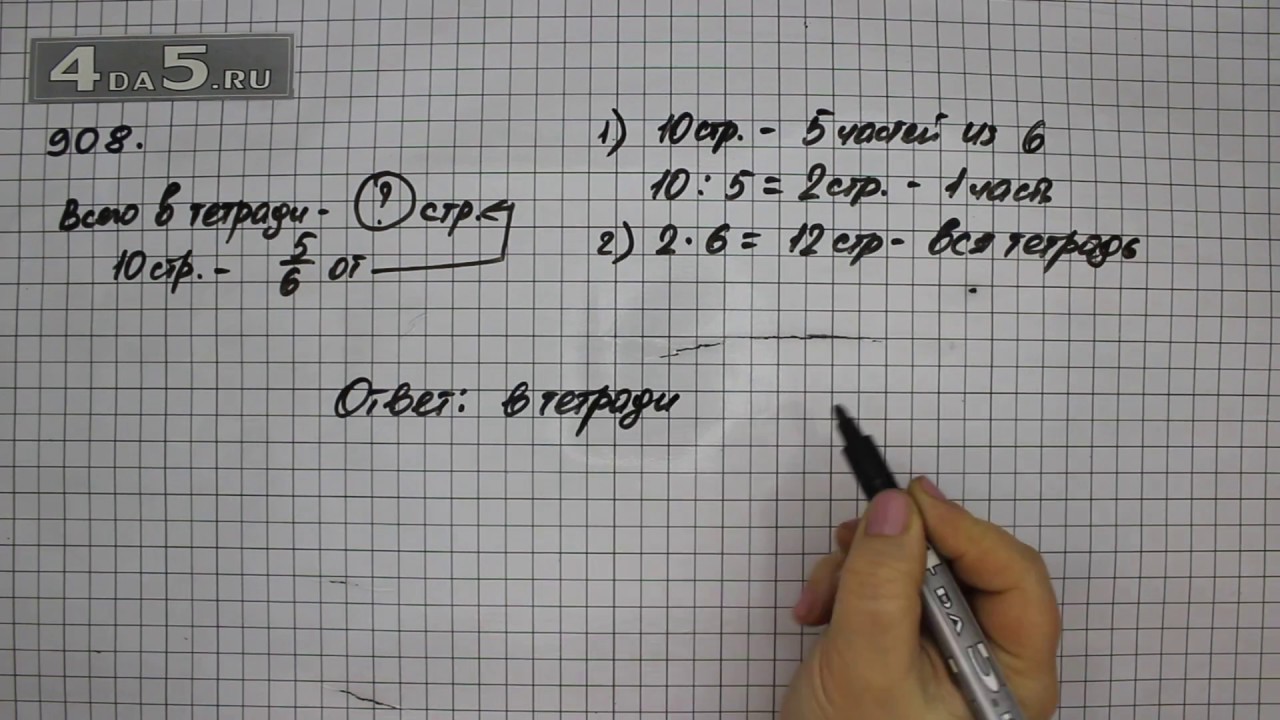 4DA5.RU
908.
Всего в тетради - ? стр.
10 стр. - 5/6 от
1) 10 стр. - 5 частей из 6
10 : 5 = 2 стр. - 1 часть
2) 2 · 6 = 12 стр - вся тетрадь
Ответ: в тетради
4 DA 5